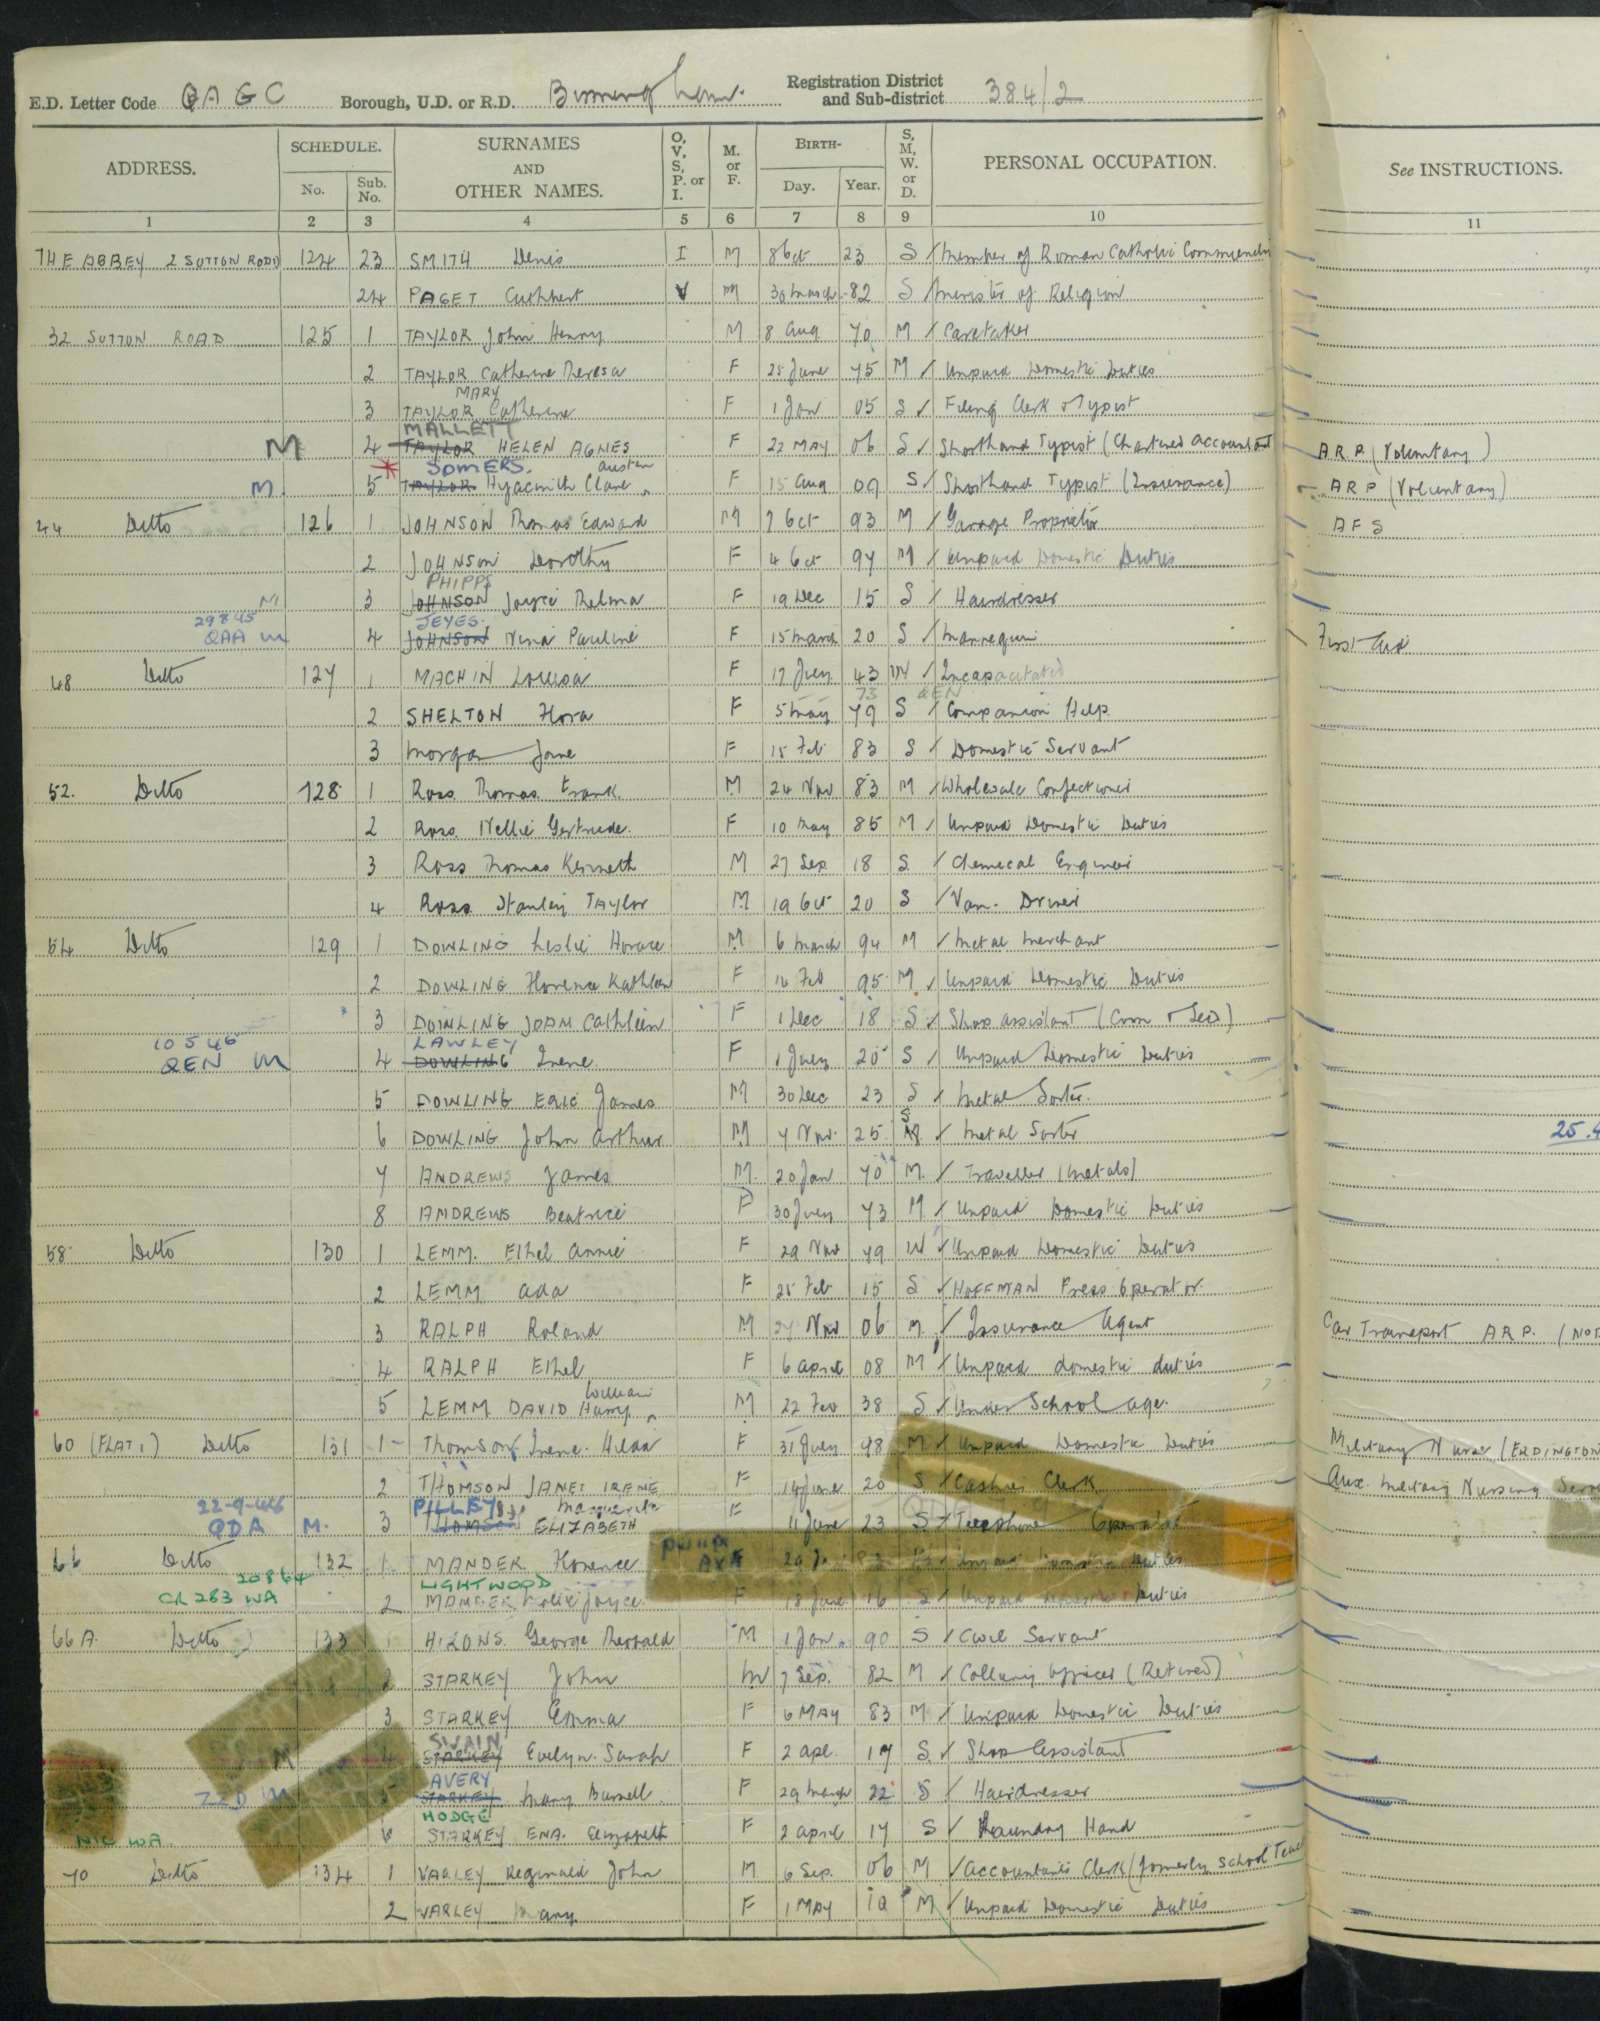 E.D. Letter Code QAGC Borough, U.D. or R.D. Birmingham. Registration District and Sub-district 384/2
ADDRESS. SCHEDULE. No. Sub. No. SURNAMES AND OTHER NAMES. O, V, S, P. or I. M. or F. BIRTH- Day. Year. S, M, W. or D. PERSONAL OCCUPATION. See INSTRUCTIONS.
1 2 3 4 5 6 7 8 9 10 11
THE ABBEY 2 SUTTON ROAD 124 23 SMITH Denis I M 8 Oct 23 S Member of Roman Catholic Community
24 PAGET Cuthbert V M 30 March 82 S Minister of Religion
32 SUTTON ROAD 125 1 TAYLOR John Henry M 8 Aug 70 M Caretaker
2 TAYLOR Catherine Theresa F 25 June 75 M Unpaid Domestic Duties
MARY
3 TAYLOR Catherine F 1 Jan 05 S Filing Clerk & Typist
MALLETT
M 4 TAYLOR HELEN AGNES F 22 MAY 06 S Shorthand Typist (Chartered Accountant ARP (Voluntary)
SOMERS. Austen
M. 5 TAYLOR Hyacinth Clare F 15 Aug 07 S Shorthand Typist (Insurance) ARP (Voluntary)
44 Ditto 126 1 JOHNSON Thomas Edward M 7 Oct 93 M Garage Proprietor AFS
2 JOHNSON Dorothy F 4 Oct 97 M Unpaid Domestic Duties
PHIPPS
M 3 JOHNSON Joyce Thelma F 19 Dec 15 S Hairdresser
29845 JEYES.
QAA M 4 JOHNSON Nina Pauline F 15 March 20 S Mannequin First Aid
48 Ditto 127 1 MACHIN Louisa F 17 July 43 W Incapacitated
73 GEN
2 SHELTON Flora F 5 May 79 S Companion Help.
3 Morgan Jane F 15 Feb 83 S Domestic Servant
52. Ditto 128 1 Ross Thomas Frank. M 24 Nov 83 M Wholesale Confectioner
2 Ross Nellie Gertrude. F 10 May 85 M Unpaid Domestic Duties
3 Ross Thomas Kenneth M 27 Sep 18 S Chemical Engineer
4 Ross Stanley Taylor M 19 Oct 20 S Van. Driver
54 Ditto 129 1 DOWLING Leslie Horace M 6 March 94 M Metal Merchant
2 DOWLING Florence Kathleen F 16 Feb 95 M Unpaid Domestic Duties
3 DOWLING JOAN Cathleen F 1 Dec 18 S Shop assistant (Corn & Seed)
10 5 46 LAWLEY
QEN M 4 DOWLING Irene F 1 July 20 S Unpaid Domestic Duties
5 DOWLING ERIC James M 30 Dec 23 S Metal Sorter.
6 DOWLING John Arthur M 7 Nov. 25 S Metal Sorter 25.4
7 ANDREWS James M 20 Jan 70 M Traveller (Metals)
8 ANDREWS Beatrice F 30 July 73 M Unpaid Domestic Duties
58 Ditto 130 1 LEMM. Ethel Annie F 29 Nov 79 W Unpaid Domestic Duties
2 LEMM Ada F 25 Feb 15 S HOFFMAN Press Operator
3 RALPH Roland M 27 Nov 06 M Insurance Agent Car Transport ARP. (NOT
4 RALPH Ethel F 6 April 08 M Unpaid domestic duties
William
5 LEMM DAVID Harry M 22 Feb 38 S Under School age.
60 (FLAT 1) Ditto 131 1 Thomson Irene Hilda F 31 July 98 M Unpaid Domestic Duties Military Nurse (ERDINGTON
2 THOMSON JANET IRENE F 14 June 20 S Cashier Clerk Aux. Military Nursing Serv
22-9-46 PILLEY Marguerita
QDA M. 3 THOMSON ELIZABETH F 11 June 23 S Telephone Operator
66 Ditto 132 1 MANDER Florence F Unpaid Domestic Duties
20864 LIGHTWOOD
CR 283 WA 2 MANDER Joyce F 18 June 16 S Unpaid Domestic Duties
66A. Ditto 133 George M 1 Jan 90 S Civil Servant
2 STARKEY John M 7 Sep. 82 M Colliery Officer (Retired)
3 STARKEY Emma F 6 MAY 83 M Unpaid Domestic Duties
SWAIN
M 4 STARKEY Evelyn Sarah F 2 Apl. 17 S Shop Assistant
AVERY
ZZD M 5 STARKEY Mary Burnell F 29 March 22 S Hairdresser
HODGE
WA 6 STARKEY ENA. Elizabeth F 2 April 17 S Laundry Hand
70 Ditto 134 1 VARLEY Reginald John M 6 Sep. 06 M Accountants Clerk (formerly School Teac
2 VARLEY Mary F 1 MAY 10 M Unpaid Domestic Duties